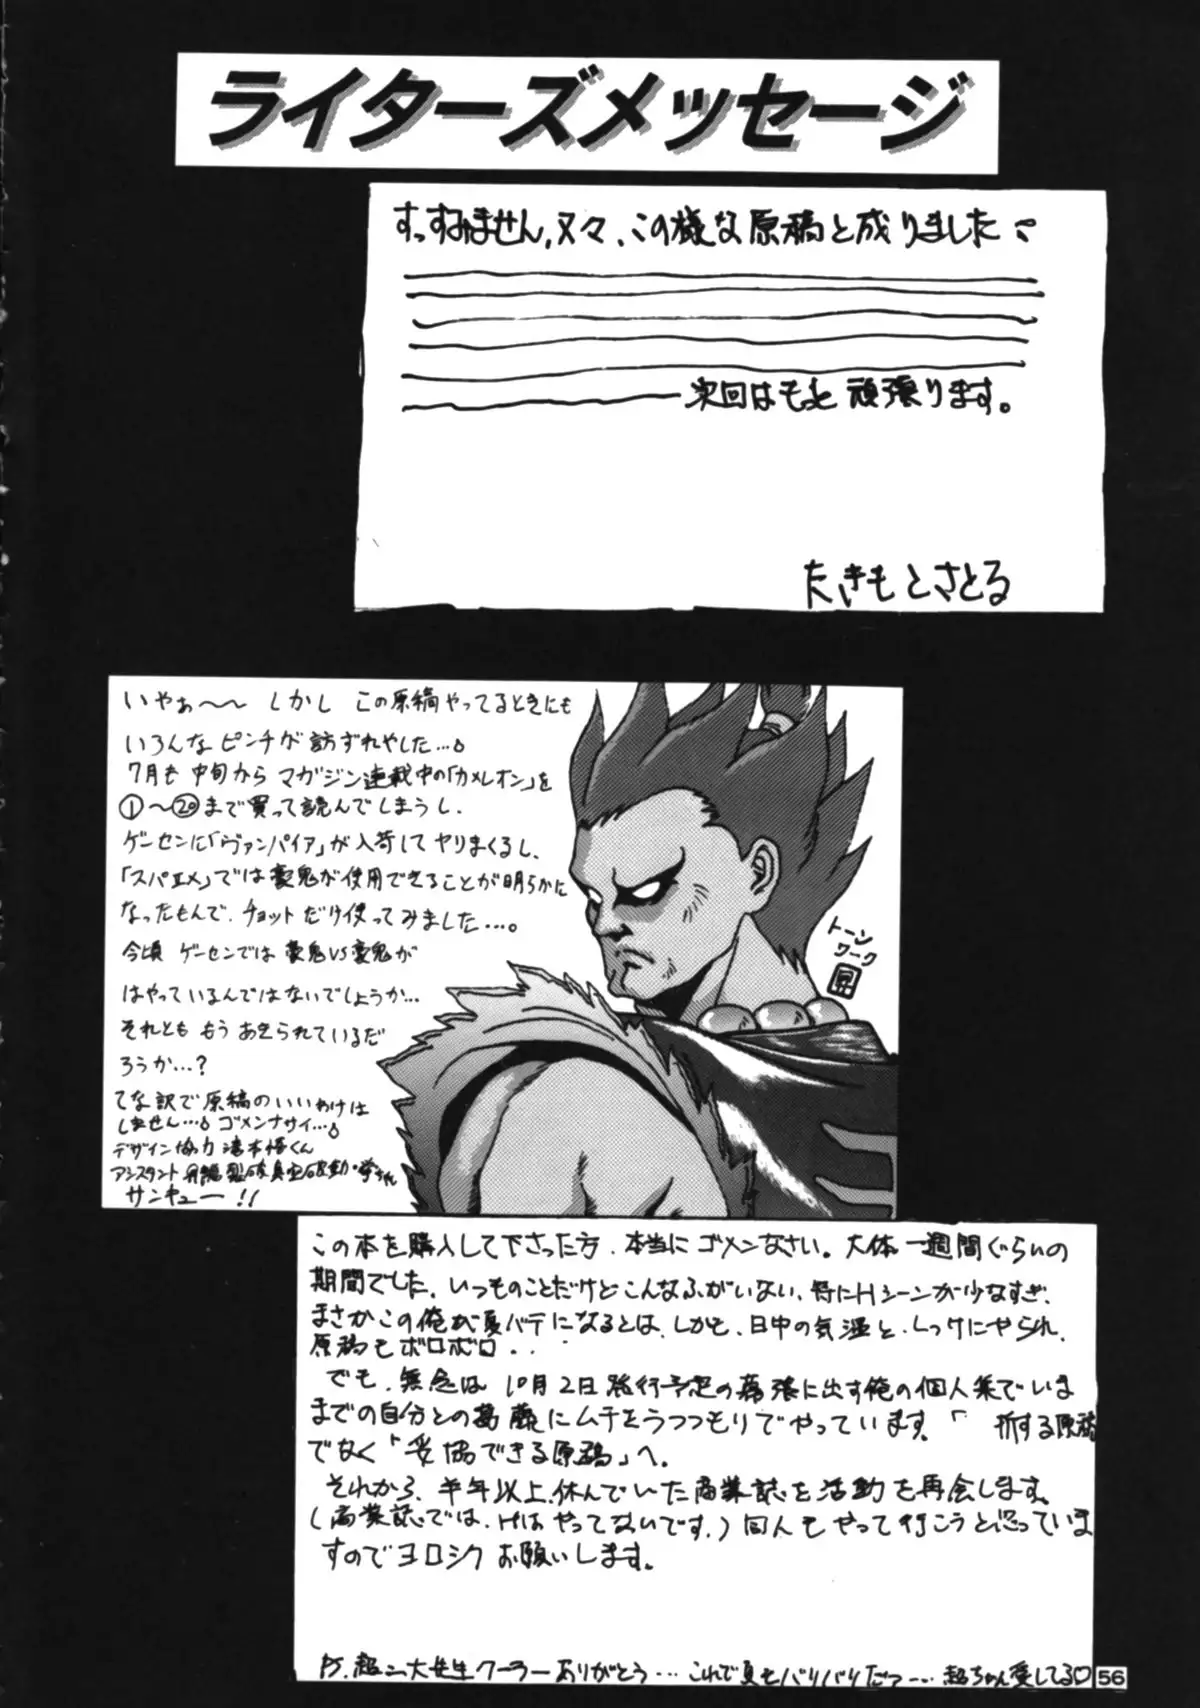 ライターズメッセージ
すっすみません、又々、この様な原稿と成りました
次回はもっと頑張ります。
たきもとさとる
いやぁ〜〜 しかし この原稿やってるときにも
いろんなピンチが訪ずれやした…。
7月も中旬から マガジン連載中の「カメレオン」を
①〜⑳まで買って読んでしまうし、
ゲーセンに「ヴァンパイア」が入荷して ヤリまくるし、
「スパエメ」では豪鬼が使用できることが明らかに
なったもんで、チョットだけ使ってみました…。
今頃 ゲーセンでは 豪鬼VS豪鬼が
はやっているんではないでしょうか…
それとも もう あきられているだ
ろうか…?
てな訳で原稿のいいわけは
しません…。ゴメンナサイ…。
デザイン協力 滝本悟くん
アシスタント
サンキュー!!
トーン
ワーク
昇
この本を購入して下さった方、本当にゴメンなさい。大体一週間ぐらいの
期間でした。いつものことだけどこんなふがいない、特にHシーンが少なすぎ、
まさかこの俺が夏バテになるとは、しかも、日中の気温と、しっけにやられ、
原稿もボロボロ・・
でも、無念は10月2日発行予定の幕張に出す俺の個人集でいま
までの自分との葛藤にムチをうつつもりでやっています。「 折する原稿
でなく「妥協できる原稿」へ。
それから、半年以上、休んでいた商業誌を活動を再会します。
(商業誌では、Hはやってないです。)同人もやって行こうと思っていま
すのでヨロシクお願いします。
PS.超二大先生クーラーありがとう… これで夏もバリバリだっ… 超ちゃん愛してる♡
56